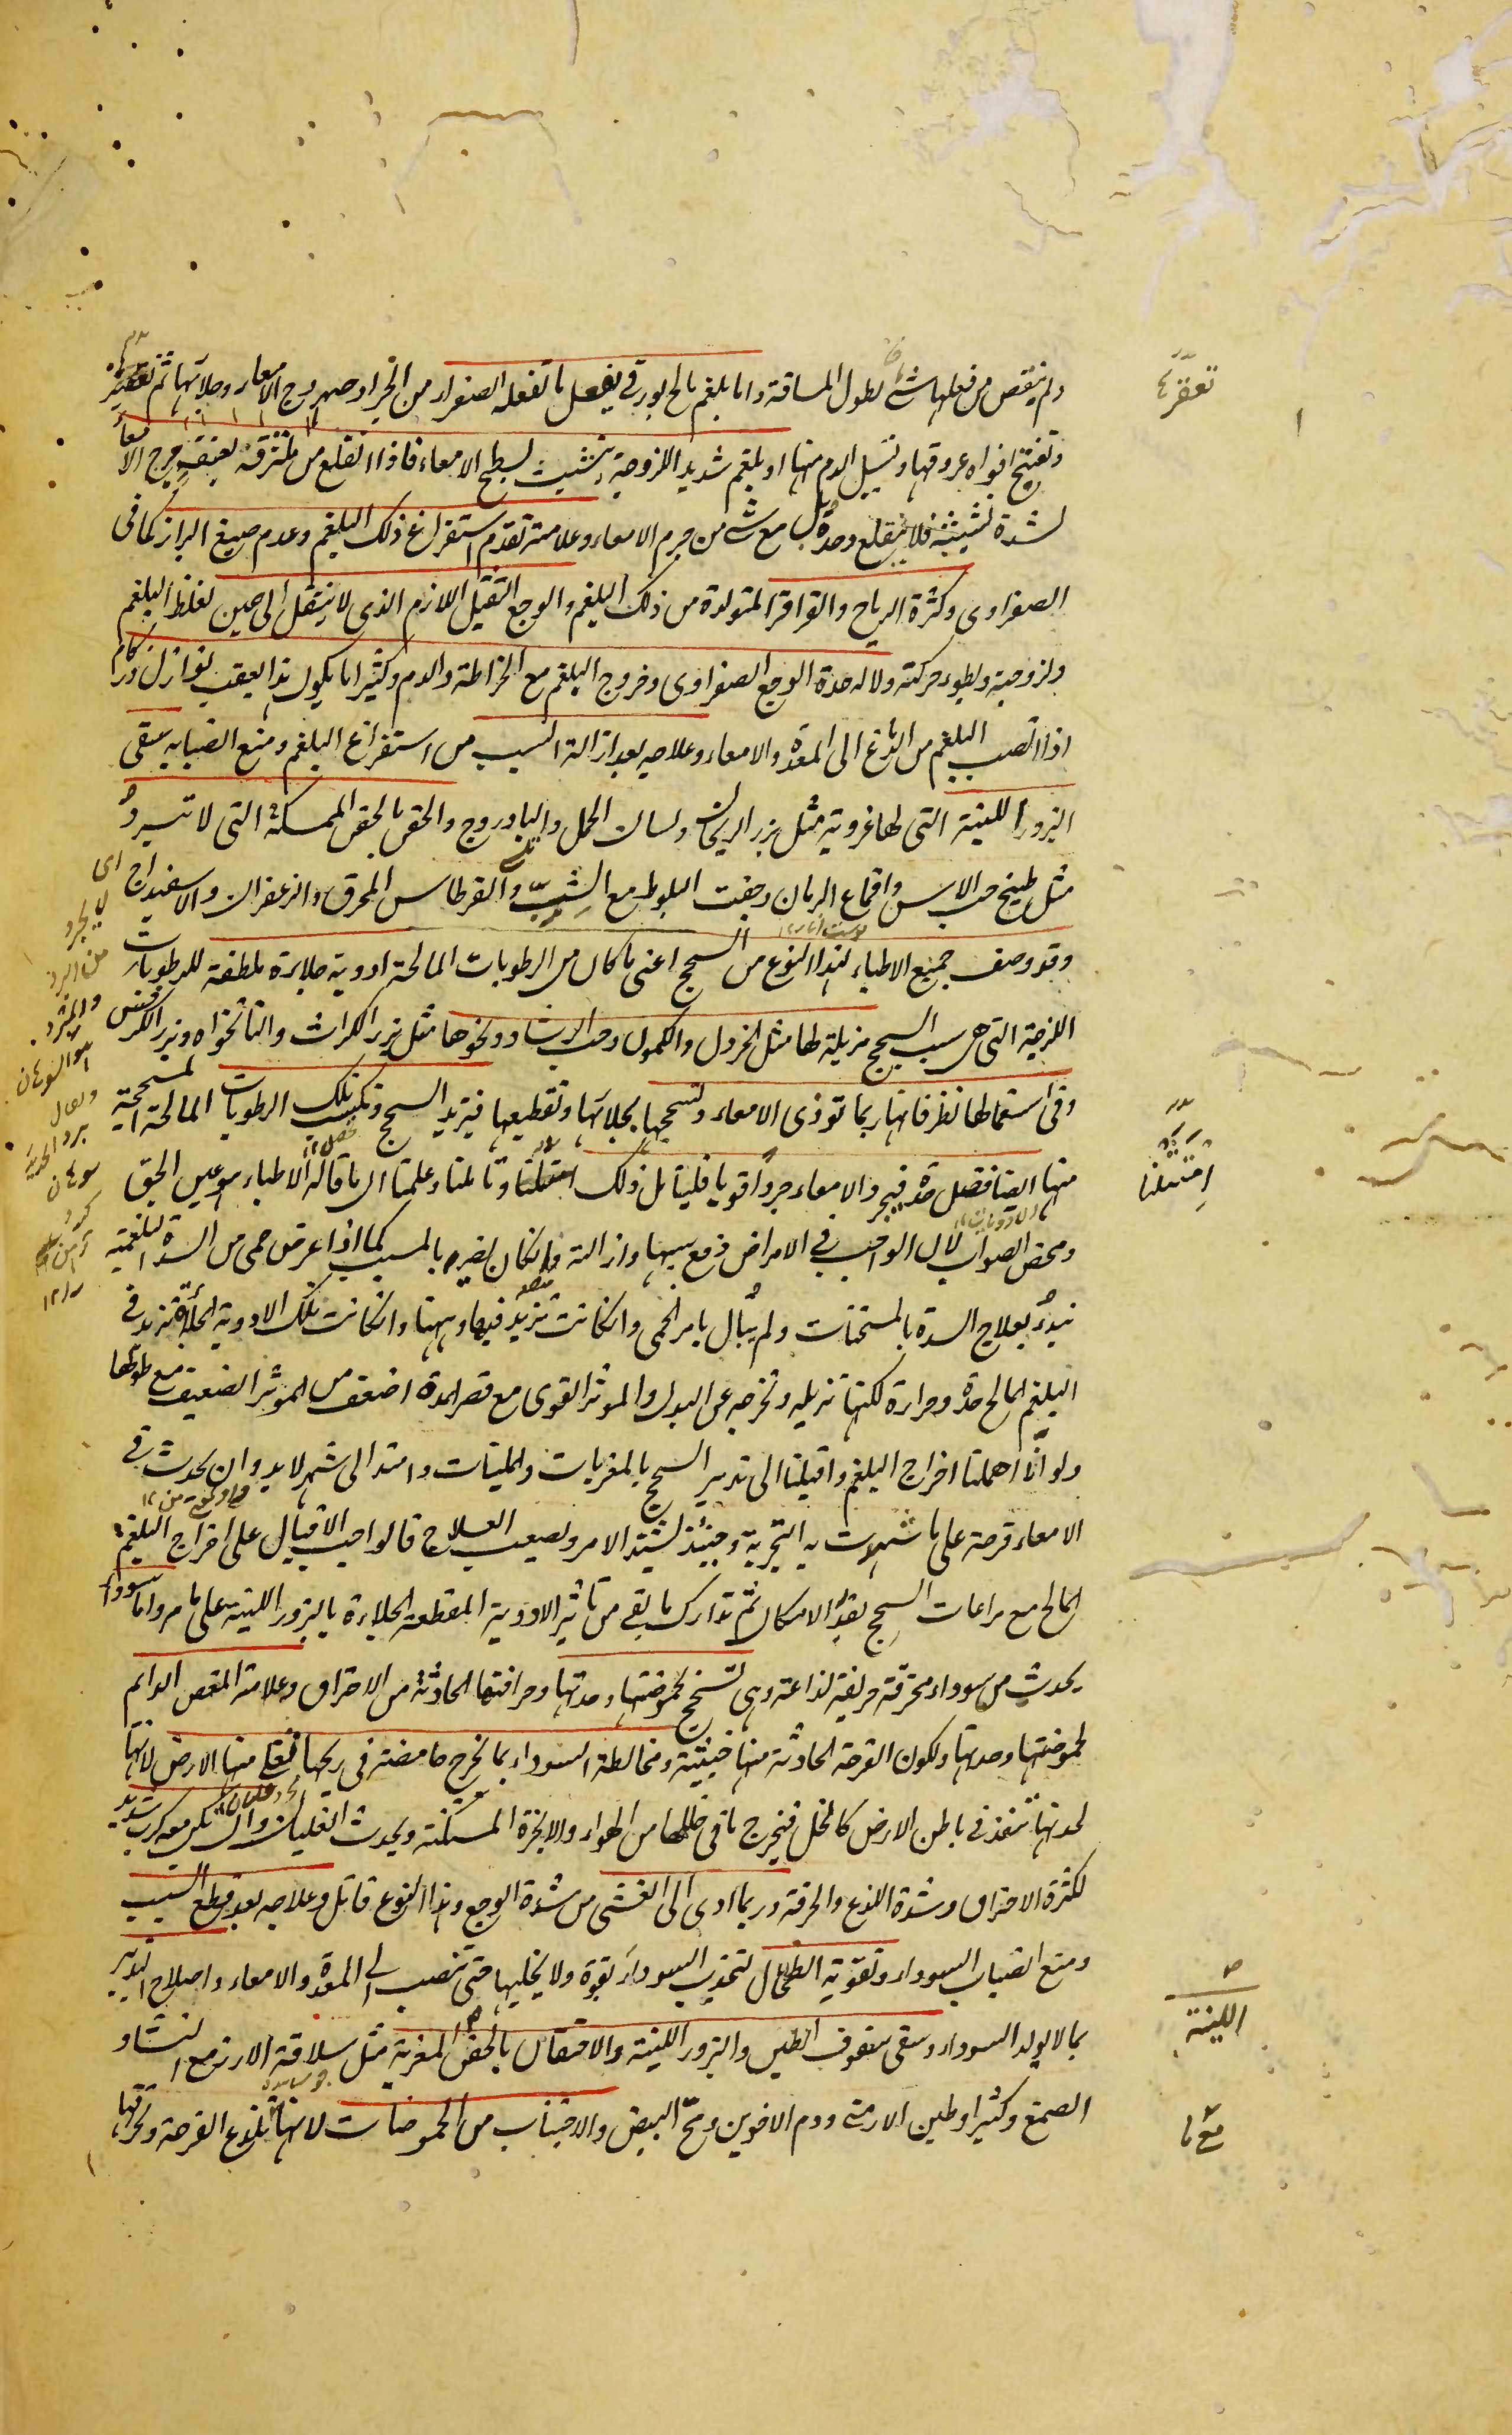 ولم ينقص من فعلها شئ لطول المسافة واما بلغم مالح بورقى يفعل ما تفعله الصفراء من انجراد صهروج الامعاء وجلائها ثم تعقرها
وتفتيح افواه عروقها وتسيل الدم منها او بلغم شديد اللزوجة يتشبث بسطح الامعاء فاذا انقلع من ملتزقه بعنف جرح الامعاء
لشدة تشبثه فلا ينقلع وحده بل مع شئ من جرم الامعاء وعلامته تقدم استفراغ ذلك البلغم وعدم صبغ البراز كما فى
الصفراوى وكثرة الرياح والقراقر المتولدة من ذلك البلغم والوجع الثقيل اللازم الذى لا ينتقل الى حين لغلظ البلغم
ولزوجته وبطوء حركته ولا له حدة الوجع الصفراوى وخروج البلغم مع الخراطة والدم وكثيرا ما يكون هذا بعقب نوازل وزكام
اذا انصب البلغم من الدماغ الى المعدة والامعاء وعلاجه بعد ازالة السبب من استفراغ البلغم ومنع انصبابه سقى
البزور اللينة التى لها غروية مثل بزر الريحان ولسان الحمل والبادروج والحقن بالحقن الممسكة التى لا تبرد
مثل طبيخ حب الآس واقماع الرمان وجفت البلوط مع الشبّ والقرطاس المحرق والزعفران والاسفيداج
وقد وصف جميع الاطباء لهذا النوع من السحج اعنى ما كان من الرطوبات المالحة ادوية جلاءة ملطفة للرطوبات
اللزجة التى هى سبب السحج مزيلة لها مثل الخردل والكمون وحب الرشاد ونحوها مثل بزر الكراث والنانخواه وبزر الكرفس
وفى استعمالها نظر فانها ربما تؤذى الامعاء وتسحجها بجلائها وتقطيعها فيزيد السحج وتكتسب تلك الرطوبات المالحة المسحجة
منها ايضا فضل حدة فيجرد الامعاء جردا قويا فليتأمل ذلك امتثلنا وتاملنا وعلمنا ان ما قاله الاطباء هو عين الحق
ومحض الصواب لان الواجب فى الامراض دفع سببها وازالته وان كان يضر بالمسبب كما اذا عرض حمى من السدة البلغمية
نبدء بعلاج السدة بالمسخنات ولم نبال بامر الحمى وان كانت تزيد فيها وههنا وان كانت تلك الادوية الجلاءة تزيد فى
البلغم المالح حدة وحرارة لكنها تزيله وتخرجه عن البدن والموثر القوى مع قصر المدة اضعف من الموثر الضعيف مع طولها
ولو انّا اهملنا اخراج البلغم واقبلنا الى تدبير السحج بالمغريات والملينات وامتد الى شهر لا بد وان يحدث فى
الامعاء قرحة على ما شهدت به التجربة وحينئذ يشتد الامر ويصعب العلاج فالواجب الاقبال على اخراج البلغم
المالح مع مراعات السحج بقدر الامكان ثم تدارك ما بقى من تاثير الادوية المقطعة الجلاءة بالبزور اللينة على ما مر واما سوداء
يحدث من سوداء محترقة حريفة لذاعة وهى تسحج بحموضتها وحدتها وحرافتها الحادثة من الاحتراق وعلامته المغص الدائم
لحموضتها وحدتها ولكون القرحة الحادثة منها خبيثة ومخالطة السوداء بما يخرج حامضة فى ريحها تغلى منها الارض لانها
لحدتها تنفذ فى باطن الارض كالخل فيخرج ما فى خللها من الهواء والابخرة المستكنة ويحدث الغليان ويكون معه كرب شديد
لكثرة الاحتراق وشدة اللذع والحرقة وربما ادى الى الغشى من شدة الوجع وهذا النوع قاتل وعلاجه بعد قطع السبب
ومنع انصباب السوداء وتقوية الطحال لتجذب السوداء بقوة ولا يخليها حتى تنصب الى المعدة والامعاء واصلاح التدبير
بما لا يولد السوداء وسقى سفوف الطين والبزور اللينة والاحتقان بالحقن المغرية مثل سلاقة الارز مع النشا و
الصمغ وكثيرا وطين الارمنى ودم الاخوين ومحّ البيض والاجتناب من الحموضات لانها تلذع القرحة وتحرقها
تعقرها
امتثلنا
اللينة
اى
لا يجرد